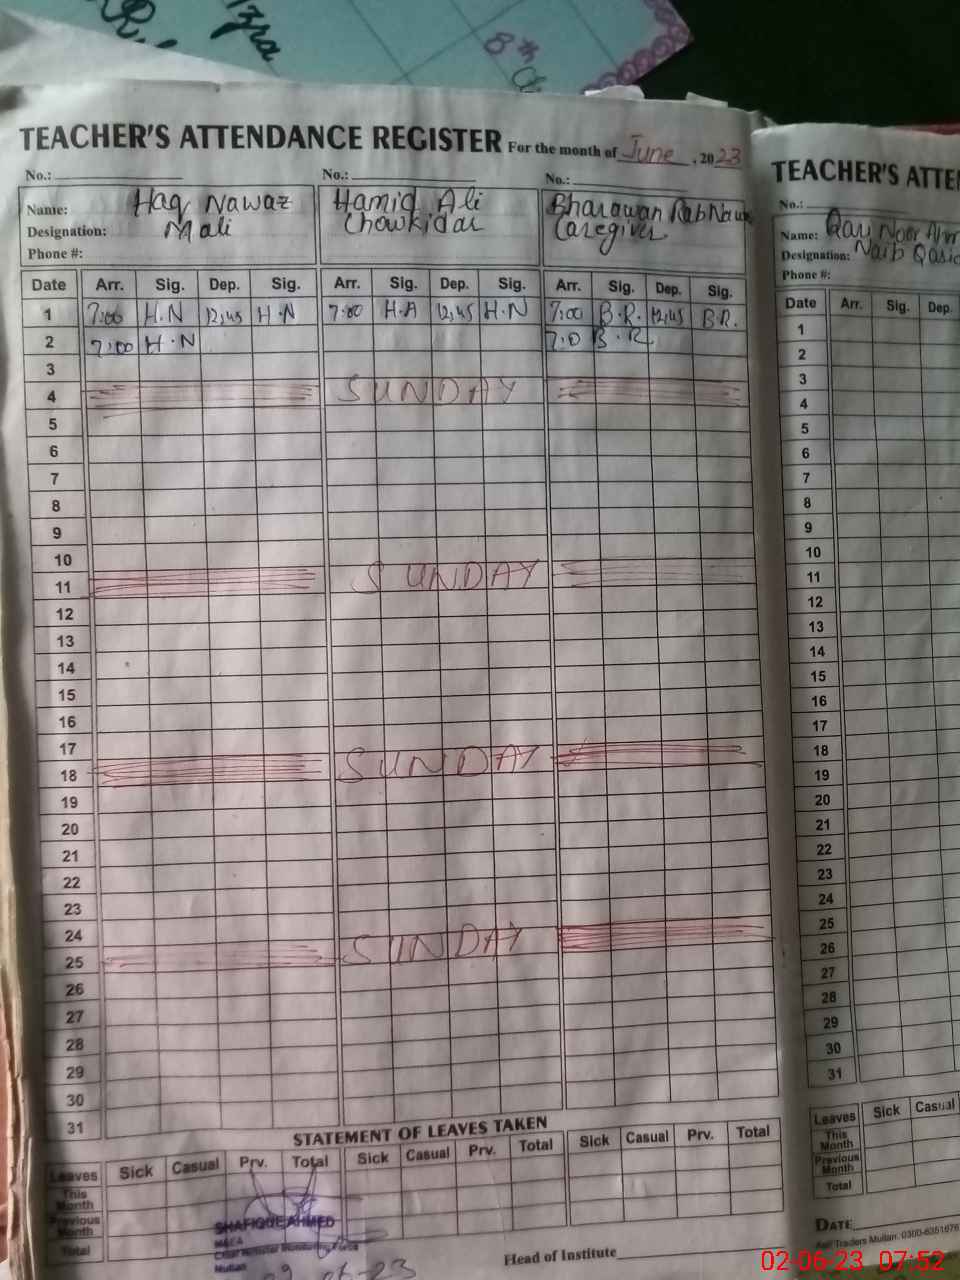 8th
TEACHER'S ATTENDANCE REGISTER For the month of June, 2023
No.: No.: No.:
Name: Haq Nawaz Hamid Ali Bharawan RabNawaz
Designation: Mali Chowkidar Caregiver
Phone #:
Date Arr. Sig. Dep. Sig. Arr. Sig. Dep. Sig. Arr. Sig. Dep. Sig.
1 7:00 H.N 12,45 H.N 7:00 H.A 12,45 H.N 7:00 B.R. 12,45 B.R.
2 7:00 H.N 7:0 B.R.
3
4 SUNDAY
5
6
7
8
9
10
11 SUNDAY
12
13
14
15
16
17
18 SUNDAY
19
20
21
22
23
24
25 SUNDAY
26
27
28
29
30
31
STATEMENT OF LEAVES TAKEN
Leaves Sick Casual Prv. Total Sick Casual Prv. Total Sick Casual Prv. Total
This Month
Previous Month
Total
SHAFIQUE AHMED
M&EA
Chief Minister Monitoring Force
Multan
Head of Institute
TEACHER'S ATTE
No.:
Name: Noor
Designation: Naib Qasid
Phone #:
Date Arr. Sig. Dep.
1
2
3
4
5
6
7
8
9
10
11
12
13
14
15
16
17
18
19
20
21
22
23
24
25
26
27
28
29
30
31
Leaves Sick Casual
This Month
Previous Month
Total
DATE
Asif Traders Multan. 0300-6351676
02-06-23 07:52